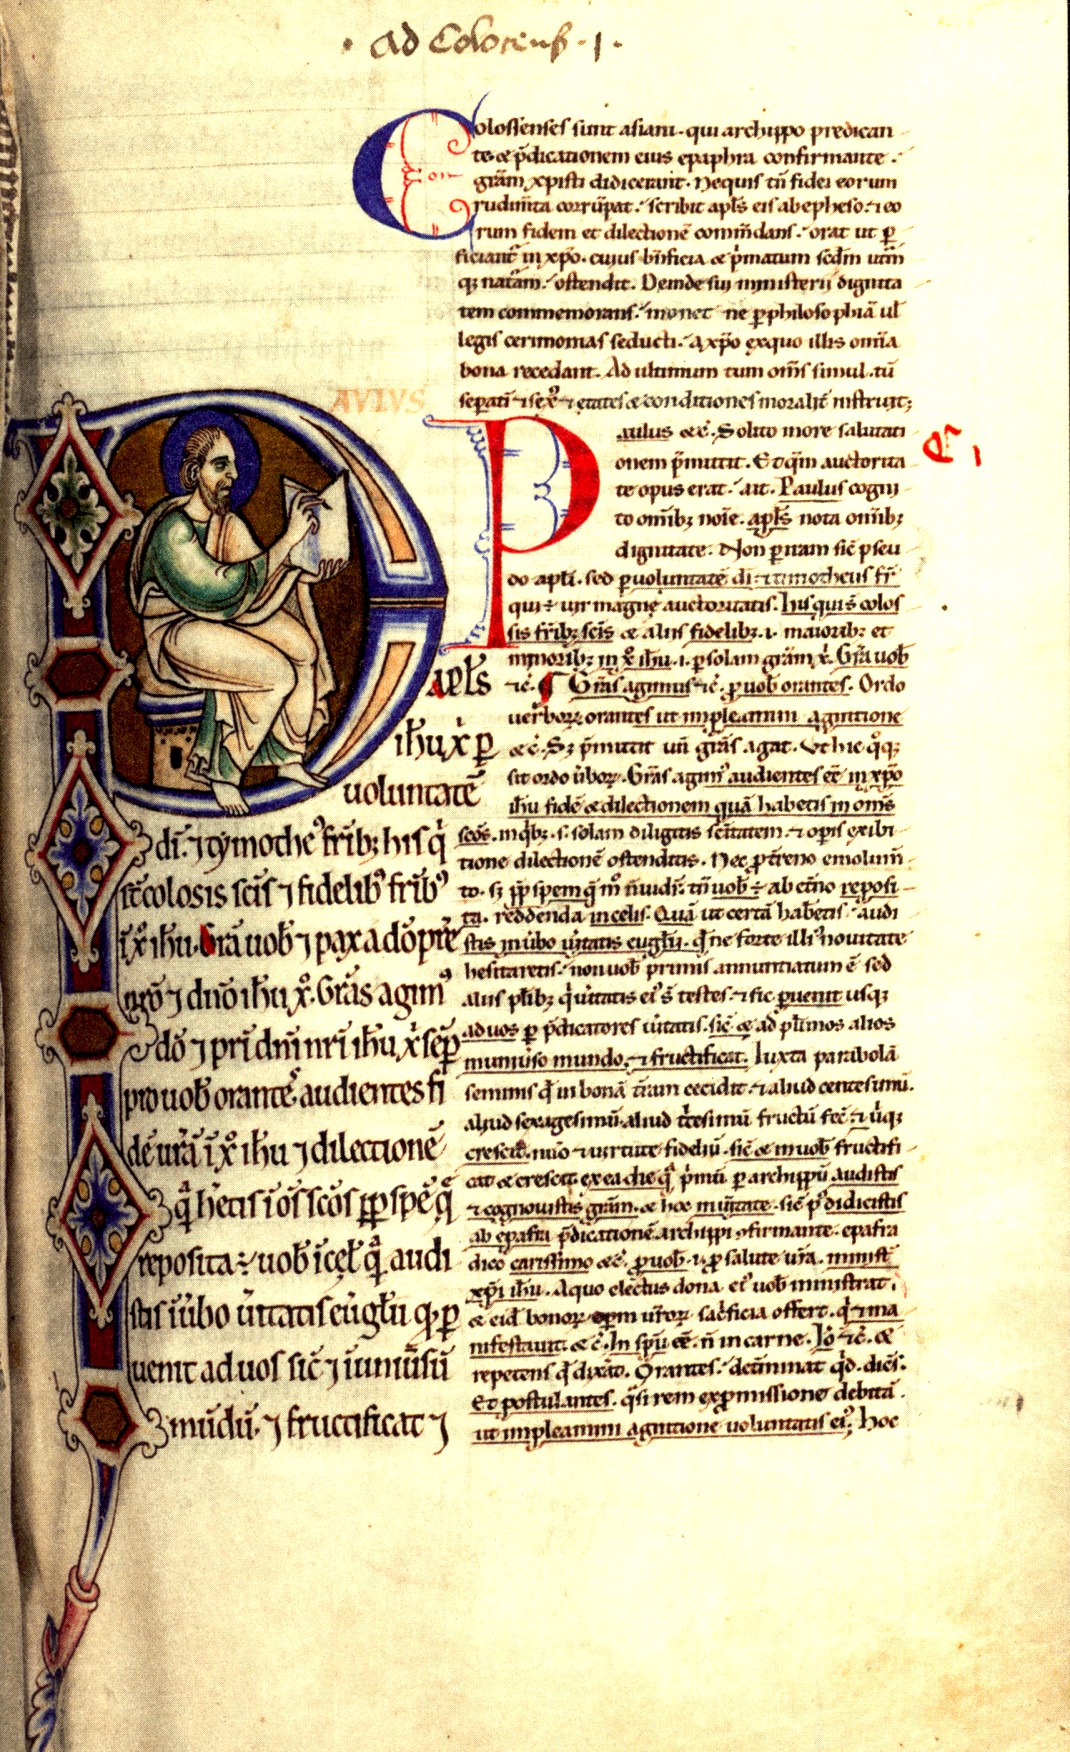 ad Colocens. 1.
Colossenses sunt asiani. qui archippo predican
te. & p̄dicationem eius epaphra confirmante.
gr̄am xp̄isti didicerunt. Nequis tn̄ fidei eorum
rudim̄ta corrūpat. scribit apl̄s eis ab epheso. ⁊ eo
rum fidem et dilectionē com̄mdans. orat ut ꝑ
ficiant᷑ in xp̄o. cuius bn̄ficia & p̄matum scd̄m utrāꝫ
qꝫ nat̄am. ostendit. Deinde sui ministerii dignita
tem commemorans. monet ne ꝑ philosophiā ul̄
legis cerimonias seducti. a xp̄o ex quo illis om̄ia
bona recedant. Ad ultimum tum om̄s simul. tū
separati ⁊ sex᷒ ⁊ etates & conditiones moralit̄ instruit;
AVLVS
Paulus &c̄. Solito more salutati
onem p̄mittit. Et qm̄ auctorita
te opus erat. ait. Paulus cogni
to omībꝫ noīe. apl̄s nota omībꝫ
dignitate. Non ꝑ uiam sic̄ pseu
do apl̄i. sed ꝑ uoluntatē di. ⁊ timotheus fr̄
qui ÷ uir magnę auctoritatis. his qui s̄ colos
sis fr̄ibꝫ sc̄is & aliis fidelibꝫ. i. maioribꝫ et
minoribꝫ in x̊ ih̄u. i. ꝑ solam gr̄am x̄. Gr̄a uob̄
⁊c̄. ¶ Gr̄as agimus ⁊c̄. ꝓ uob̄ orantes. Ordo
uerborꝝ. orantes ut impleamini agnitione
&c̄. Sꝫ p̄mittit un̄ gr̄as agat. Vt hic q̊qꝫ
sit ordo ūborꝝ. Gr̄as agim᷒ audientes &c̄ in xp̄o
ih̄u fidē & dilectionem quā habetis in om̄s
sc̄os. in qͥbꝫ. s. solam diligitis sc̄itatem. ⁊ opis exibi
tione dilectionē ostenditis. Nec ꝓ t̄reno emolum̄
to. sꝫ ꝓp spem q̄ m̄ n̄ uidr̄. tn̄ uob̄ ÷ ab et̄no reposi
ta. reddenda in celis. Quā ut certā habetis. audi
stis in ūbo ūitatis eugl̄ii. q̄ ne forte illi᷒ nouitate
hesitaretis. non uob̄ primis annuntiatum ē sed
aliis pl̄ibꝫ qͥ ūitatis ei᷒ s̄ testes. ⁊ sic ꝑuenit usqꝫ
ad uos ꝑ p̄dicatores ūitatis. sic̄ & ad pl̄imos alios
in uniūso mundo. ⁊ fructificat. Iuxta parabolā
seminis q̄ in bonā t̄ram cecidit ⁊ aliud centesimū.
aliud sexagesimū. aliud t̄cesimū fructū fec̄. ⁊ ūiqꝫ
crescit. nūo ⁊ uirtute fideliū. sic̄ & in uob̄ fructifi
cat & crescit ex ea die qͣ p̄mū ꝑ archippū audistis
⁊ cognouistis gr̄am. & hoc in ūitate. sic̄ p᷒ didicistis
ab epafra p̄dicationē archippi ꝯfirmante. epafra
dico carissimo &c̄. ꝓ uob̄. i. ꝓ salute ur̄a. minist̄
xp̄i ih̄u. A quo electus dona ei᷒ uob̄ ministrat.
& eid̄ bonorꝝ opem ur̄orꝝ sac̄ficia offert. qͥ ⁊ ma
nifestauit. &c̄. In sp̄u &c̄. n̄ in carne. Io̊ ⁊c̄. &
repetens q̄ dixat̄. Orantes. det̄minat qͥd. dicēs.
Et postulantes. q̄si rem ex ꝓmissione debitā.
ut impleamini agnitione uoluntatis ei᷒. hoc
apl̄s
ih̄u x̄ ꝑ
uoluntatē
di. ⁊ tymothe᷒ fr̄ibꝫ his qͥ
st̄ colosis sc̄is ⁊ fidelib᷒ fr̄ib᷒
ī x̊ ih̄u. Gr̄a uob̄ ⁊ pax a dō pr̄e
nr̄o ⁊ dn̄o ih̄u x̊. Gr̄as agim᷒
dō ⁊ pr̄i dn̄i nr̄i ih̄u x̄ sēp
pro uob̄ orantes audientes fi
dē ur̄ā ī x̊ ih̄u ⁊ dilectionē
qͣ h̄etis ī ōs sc̄os ꝓp spē qͣ
reposita ÷ uob̄ ī cęl̄ qͣ audi
stis ī ūbo ūitatis eūgl̄ii qꝫ ꝑ
uenit ad uos sic̄ ⁊ ī uniūsū
mūdū. ⁊ fructificat ⁊